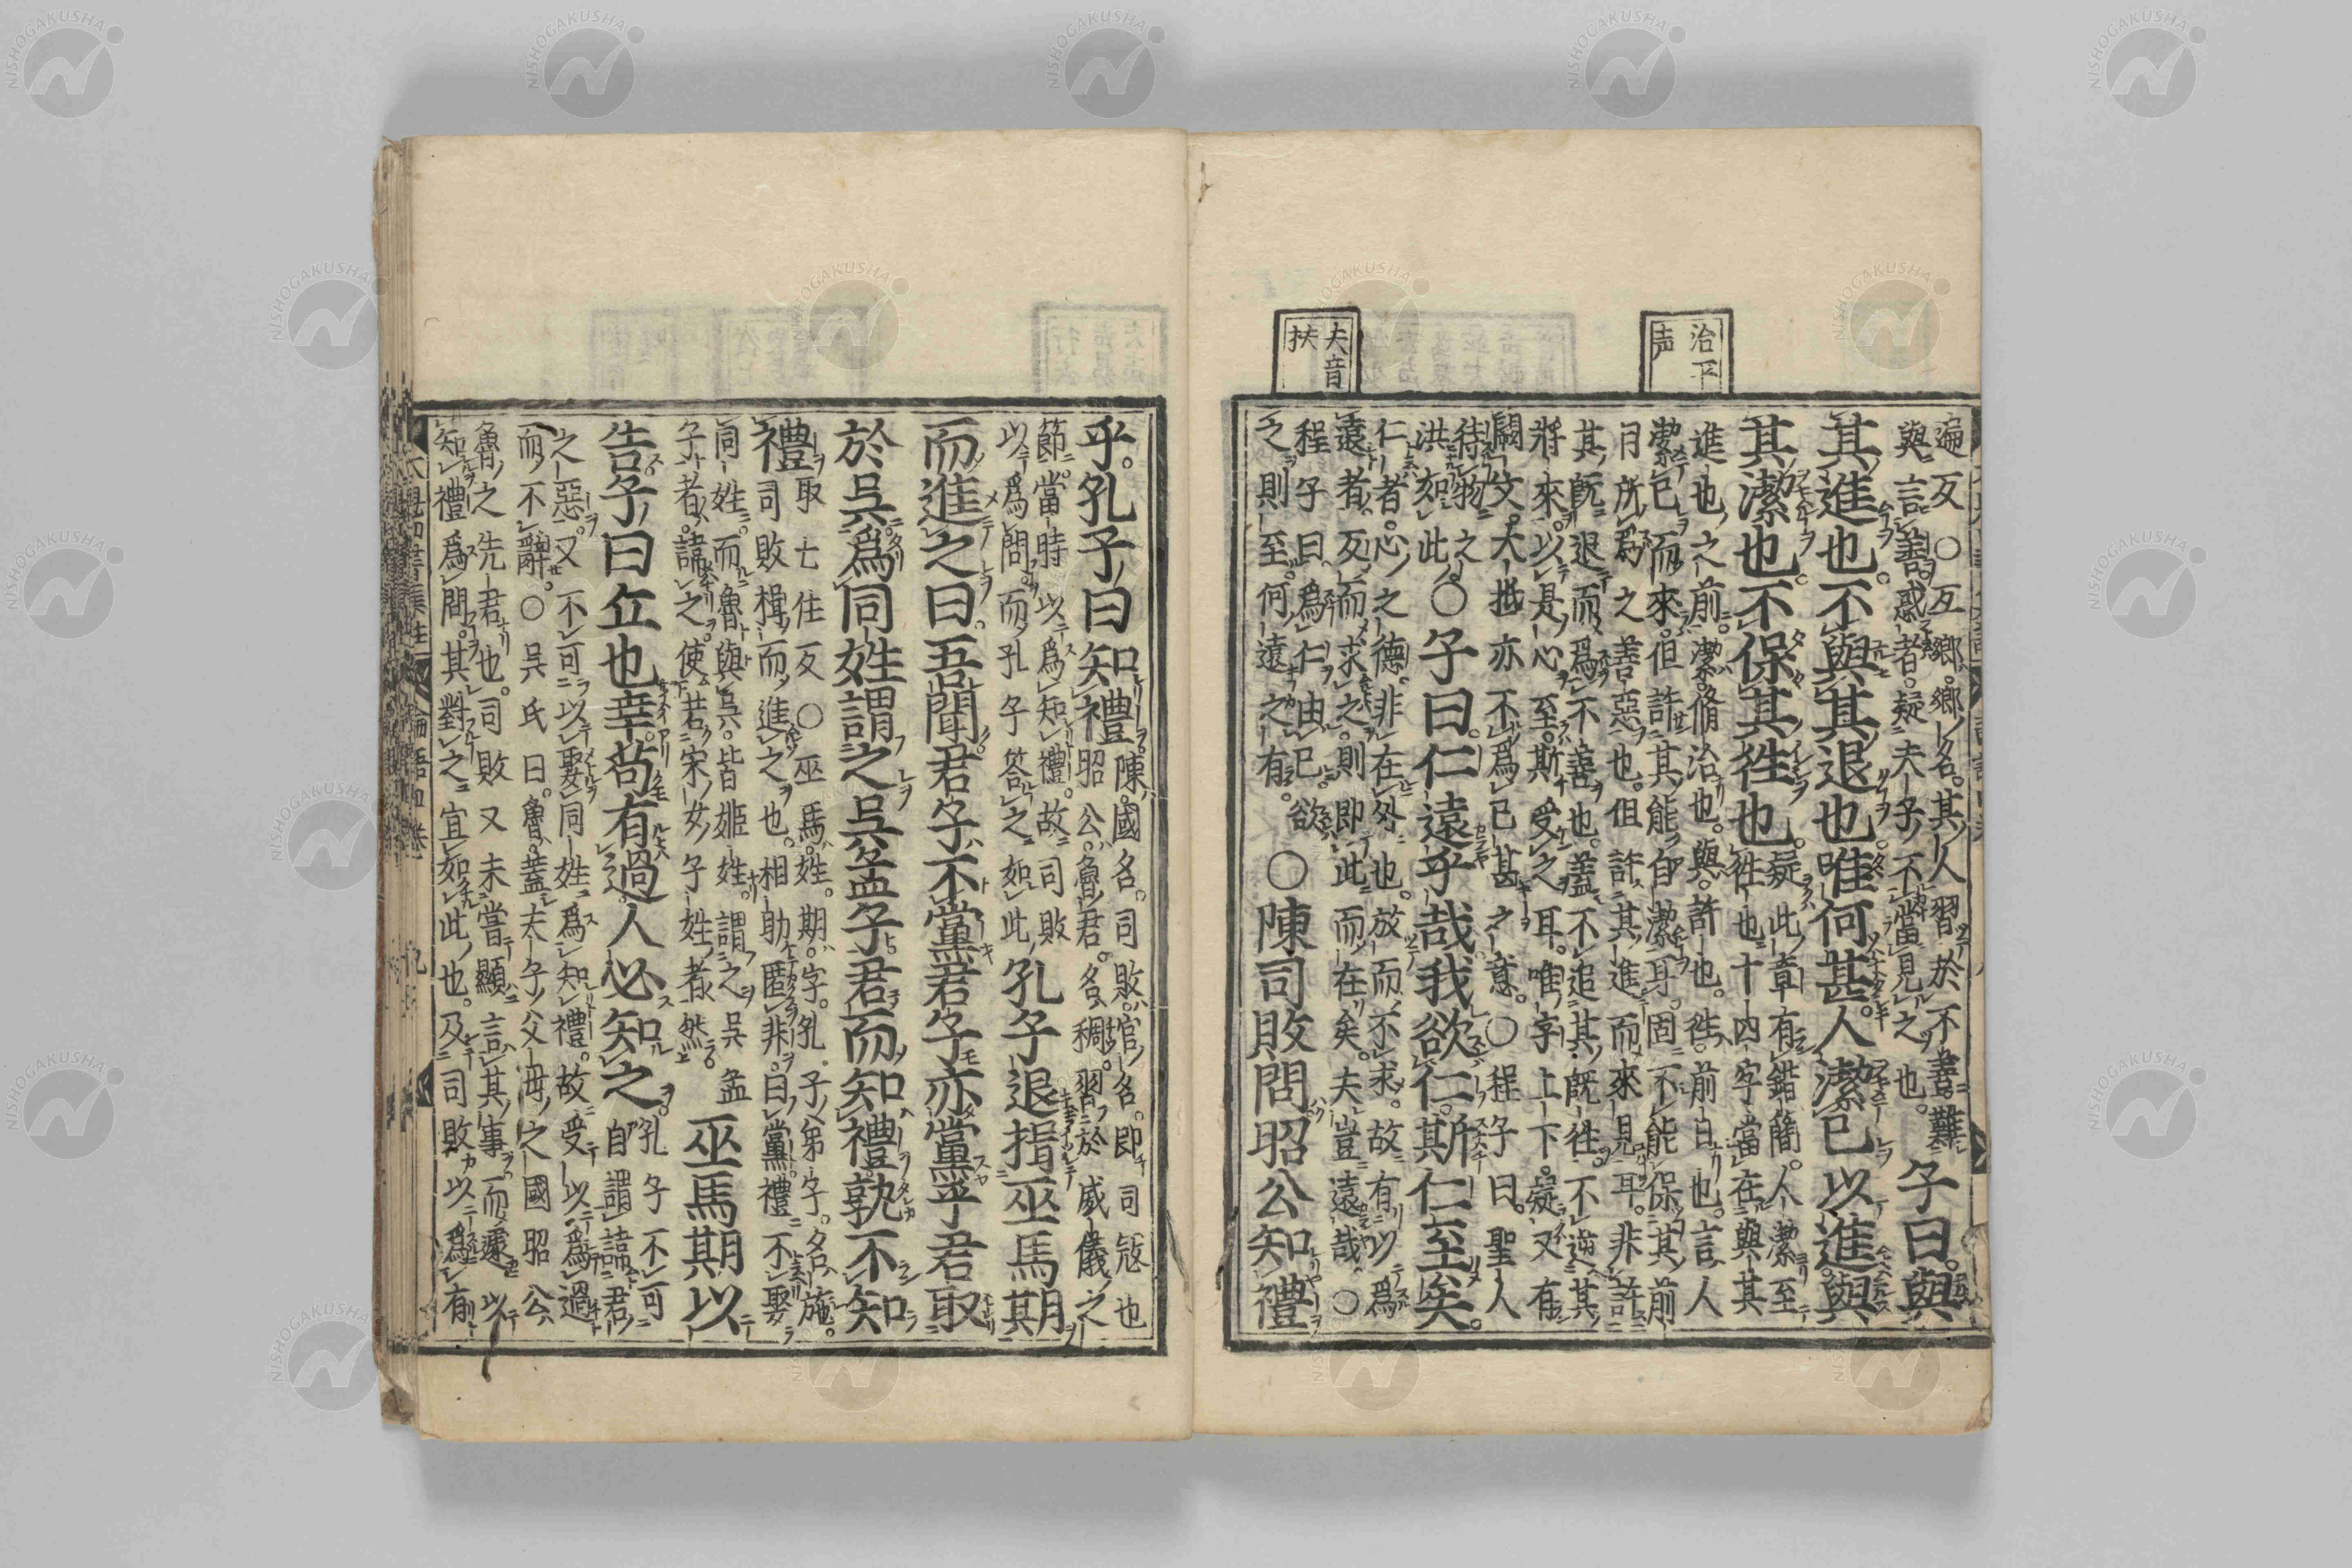 治平
声
夫音
扶
遍反○互鄉鄉名其人習於不善難
與言善惑者疑夫子不當見之也
子曰與
其進也不與其退也唯何甚人潔已以進與
其潔也不保其徃也
疑此章有錯簡人潔至
徃也十四字當在與其
進也之前潔脩治也與許也徃前日也言人
潔已而來但許其能自潔耳固不能保其前
日所爲之善惡也但許其進而來見耳非許
其旣退而爲不善也蓋不追其旣徃不逆其
將來以是心至斯受之耳唯字上下疑又有
闕文大抵亦不爲已甚之意○程子曰聖人
待物之
洪如此
○子曰仁遠乎哉我欲仁斯仁至矣
仁者心之德非在外也放而不求故有以爲
遠者反而求之則即此而在矣夫豈遠哉○
程子曰爲仁由已欲
之則至何遠之有
○陳司敗問昭公知禮
乎孔子曰知禮
陳國名司敗官名即司寇也
昭公魯君名稠習於威儀之
節當時以爲知禮故司敗
以爲問而孔子答之如此
孔子退揖巫馬期
而進之曰吾聞君子不黨君子亦黨乎君取
於吳爲同姓謂之吳孟子君而知禮孰不知
禮
取七住反○巫馬姓期字孔子弟子名施
司敗揖而進之也相助匿非曰黨禮不娶
同姓而魯與吳皆姬姓謂之吳孟
子者諱之使若宋女子姓者然
巫馬期以
告子曰丘也幸苟有過人必知之
孔子不可
自謂諱君
之惡又不可以娶同姓爲知禮故受以爲過
而不辭○吳氏曰魯蓋夫子父母之國昭公
魯之先君也司敗又未嘗顯言其事而遽以
知禮爲問其對之宜如此也及司敗以爲有